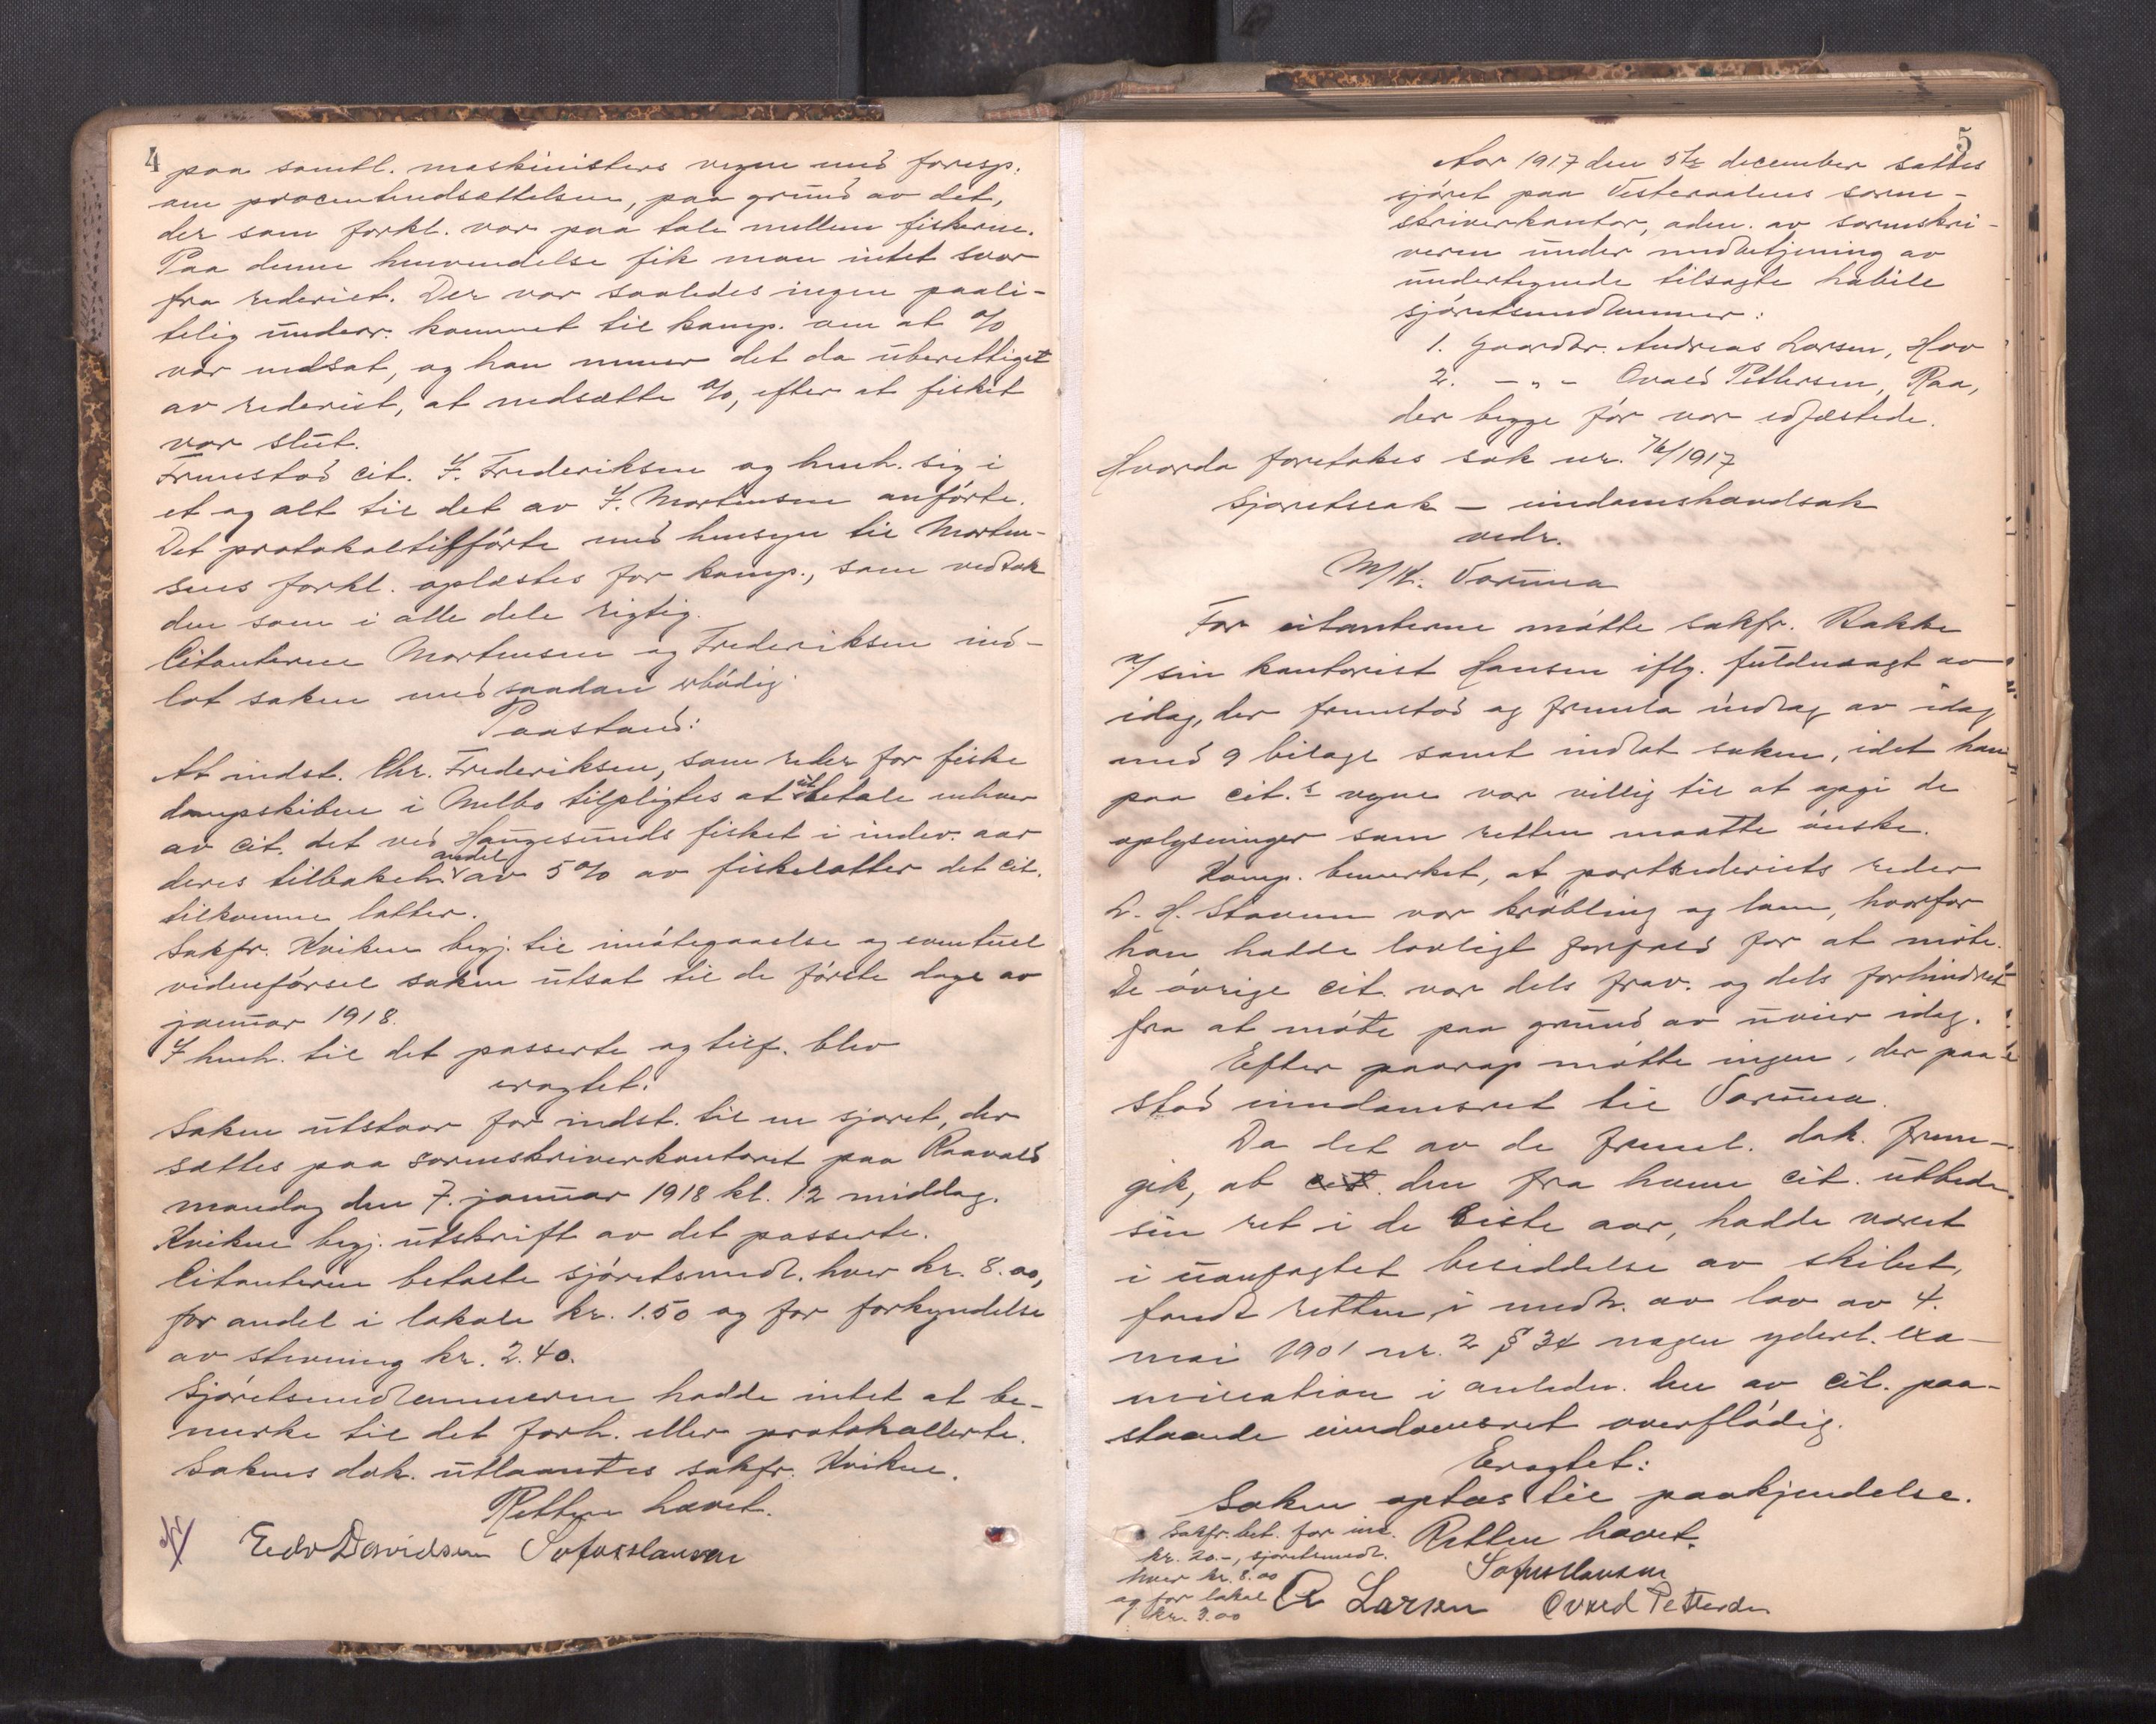 4
paa samtl. maskinisters vegne med foresp.
om procentnedsættelsen, paa grund av det,
der som forkl. var paa tale mellem fiskerne.
Paa denne henvendelse fik man intet svar
fra rederiet. Der var saaledes ingen paali-
telig underr. kommet til komp. om at %
var nedsat, og han mener det da uberettiget
av rederiet, at nedsætte %, efter at fisket
var slut.
Fremstod cit. F. Frederiksen og henh. sig i
et og alt til det av F. Mortensen anførte.
Det protokoltilførte med hensyn til Morten-
sens forkl. oplæstes for komp., som vedtok
den som i alle dele rigtig.
Citanterne Mortensen og Frederiksen ind-
lot saken med saadan ærbödig
Paastand:
At indst. Chr. Frederiksen, som reder for fiske
dampskibene i Melbo tilpligtes at utbetale enhver
av cit. det ved Haugesunds fisket i indev. aar
deres tilbakeh. andel av 5% av fiskelotter det cit.
tilkomne lotter.
Sakfr. Kvikne begj. til imötegaaelse og eventuel
vidneførsel saken utsat til de förste dage av
januar 1918.
I henh. til det passerte og tilf. blev
eragtet:
Saken utstaar for indst. til en sjøret, der
sættes paa sorenskriverkontoret paa Raavold
mandag den 7. januar 1918 kl. 12 middag.
Kvikne begj. utskrift av det passerte.
Citanterne betalte sjöretsmedl. hver kr. 8.00,
for andel i lokale kr. 1.50 og for forkyndelse
av stevning kr. 2.40.
Sjöretsmedlemmerne hadde intet at be-
merke til det forh. eller protokollerte.
Sakens dok. utlaantes sakfr. Kvikne.
Retten hævet.
Edv Davidsen Sofus Hansen
5
Aar 1917 den 5te december sattes
sjöret paa Vesteraalens soren-
skriverkontor, adm. av sorenskri-
veren under medbetjening av
undertegnede tilsagte habile
sjöretsmedlemmer:
1. Gaardbr. Andreas Larsen, Hov
2. - " - Ovald Pettersen, Raa,
der begge för var edfæstede.
Hvorda foretokes sak nr. 76/1917
Sjøretssak - eiendomshævdsak
vedr.
M/K. Varuna
For citanterne mötte sakfr. Bakke
v/ sin kontorist Hansen iflg. fuldmagt av
idag, der fremstod og fremla indlæg av idag
med 9 bilage samt indlot saken, idet han
paa cit.s vegne var villig til at opgi de
oplysninger som retten maatte önske.
Komp. bemerket, at partrederiets reder
L. H. Stavnem var kröbling og lam, hvorfor
han hadde lovligt forfald for at möte.
De övrige cit. var dels frav. og dels forhindret
fra at möte paa grund av uveir idag.
Efter paarop mötte ingen, der paa-
stod eiendomsret til Varuna.
Da det av de freml. dok. frem-
gik, at cit. den fra hvem cit. utleder
sin ret i de siste aar, hadde været
i uanfægtet besiddelse av skibet,
fandt retten, i medh. av lov av 4.
mai 1901 nr. 2 § 34 nogen yderl. exa-
mination i anledn. den av cit. paa-
staaede eiendomsret overflödig.
Eragtet:
Saken optas til paakjendelse.
Retten hævet.
Sakfr. bet. for ind.
kr. 20.-, sjøretsmedl.
hver kr. 8.00
og for lokale
kr. 3.00
Sofus Hansen
A Larsen Ovald Pettersen